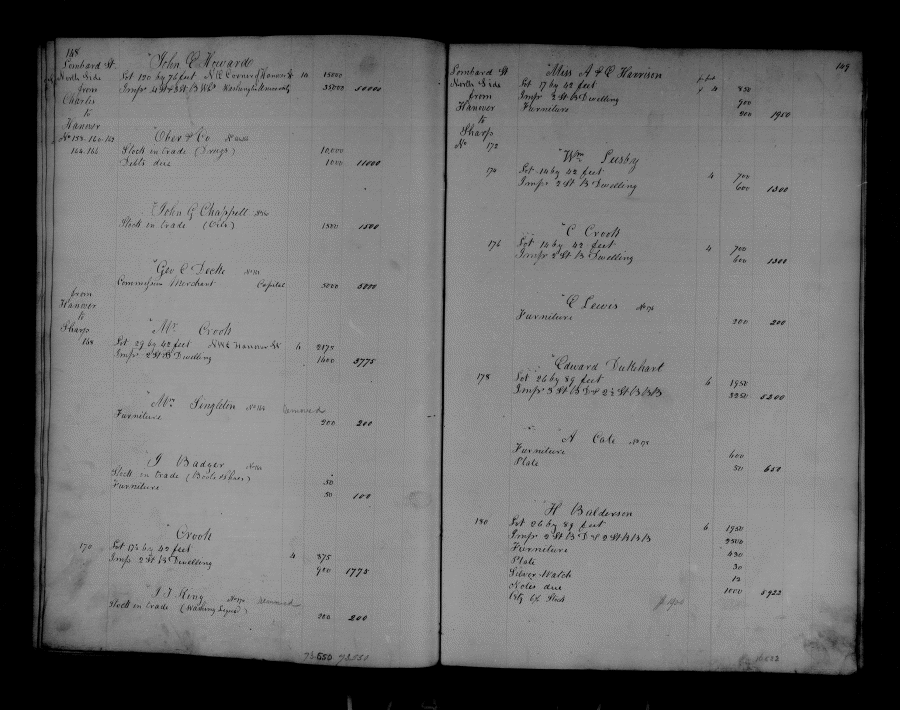 148
Lombard St. "John E Howard
North Side Lot 120 by 76 feet N.E. Corner of Hanover St 10 15000
from Imps 4 St & 3 St B Whs 35000 50000
Charles
to
Hanover
No 158. 160. 162 "Ober & Co
164. 166 Stock in trade (Drugs) 10,000
Debts due 1000 11000
"John G Chappell
Stock in trade (Oils) 1500 1500
"Geo C
Commission Merchant Capital 5000 5000
from
Hanover
to
Sharp "Mr. Crook
168 Lot 29 by 42 feet N.W. Hanover St 6 2175
Imps 2 St B Dwelling 1600 3775
"Mrs Singleton removed
Furniture 200 200
"J Badger
Stock in trade (Boots & Shoes) 50
Furniture 50 100
" Crook
170 Lot 17½ by 42 feet
Imps 2 St B Dwelling 4 875
900 1775
"J J King removed
Stock in trade 200 200
72550
149
Lombard St "Miss A & E Harrison per foot
North Side Lot 17 by 42 feet 4 850
from Imps 2 St B Dwelling 900
Hanover Furniture 200 1950
to
Sharp
No 172
"Wm Lusby
174 Lot 14 by 42 feet 4 700
Imps 2 St B Dwelling 600 1300
"C Crook
176 Lot 14 by 42 feet 4 700
Imps 2 St B Dwelling 600 1300
"E Lewis No 176
Furniture 200 200
"Edward Dukehart
178 Lot 26 by 89 feet 6 1950
Imps 3 St B D & 2½ St B B B 3250 5200
"A Cole No 178
Furniture 600
Plate 50 650
"H Balderson
180 Lot 26 by 89 feet 6 1950
Imps 2 St B D & 2 St B B B 2500
Furniture 430
Plate 30
Silver Watch 12
Notes due 1000 5922
City 6% Stock